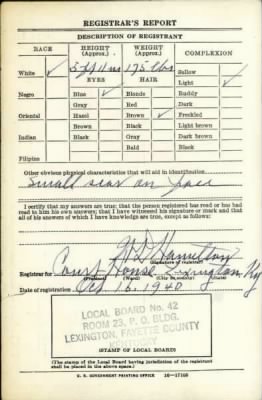 REGISTRAR'S REPORT
DESCRIPTION OF REGISTRANT
RACE HEIGHT (Approx.) WEIGHT (Approx.) COMPLEXION
White ✓ 5 ft 11 ins 175 lbs Sallow
EYES HAIR Light ✓
Negro Blue ✓ Blonde Ruddy
Gray Red Dark
Oriental Hazel Brown ✓ Freckled
Brown Black Light brown
Indian Black Gray Dark brown
Bald Black
Filipino
Other obvious physical characteristics that will aid in identification
Small scar on face
I certify that my answers are true; that the person registered has read or has had
read to him his own answers; that I have witnessed his signature or mark and that
all of his answers of which I have knowledge are true, except as follows:
Hamilton
(Signature of registrar)
Registrar for Court House Lexington Ky
(Precinct) (Ward) (City or county) (State)
Date of registration Oct 16, 1940
LOCAL BOARD No. 42
ROOM 23, P. O. BLDG.
LEXINGTON, FAYETTE COUNTY
KENTUCKY
(STAMP OF LOCAL BOARD)
(The stamp of the Local Board having jurisdiction of the registrant
shall be placed in the above space.)
U. S. GOVERNMENT PRINTING OFFICE 16—17105